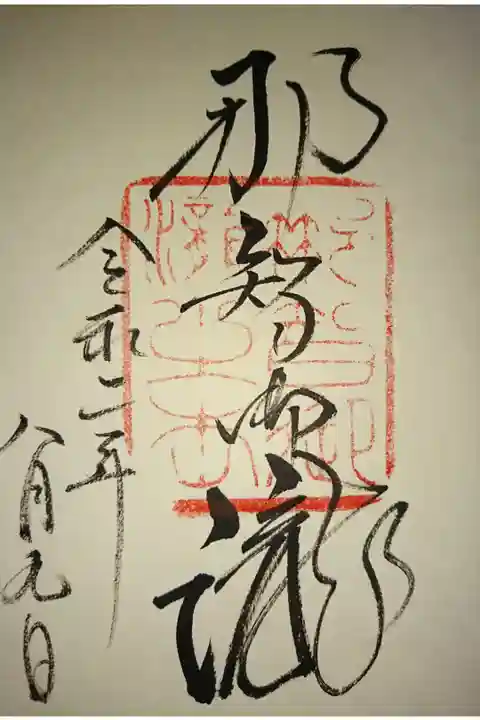 那智御瀧
令和二年
八月九日